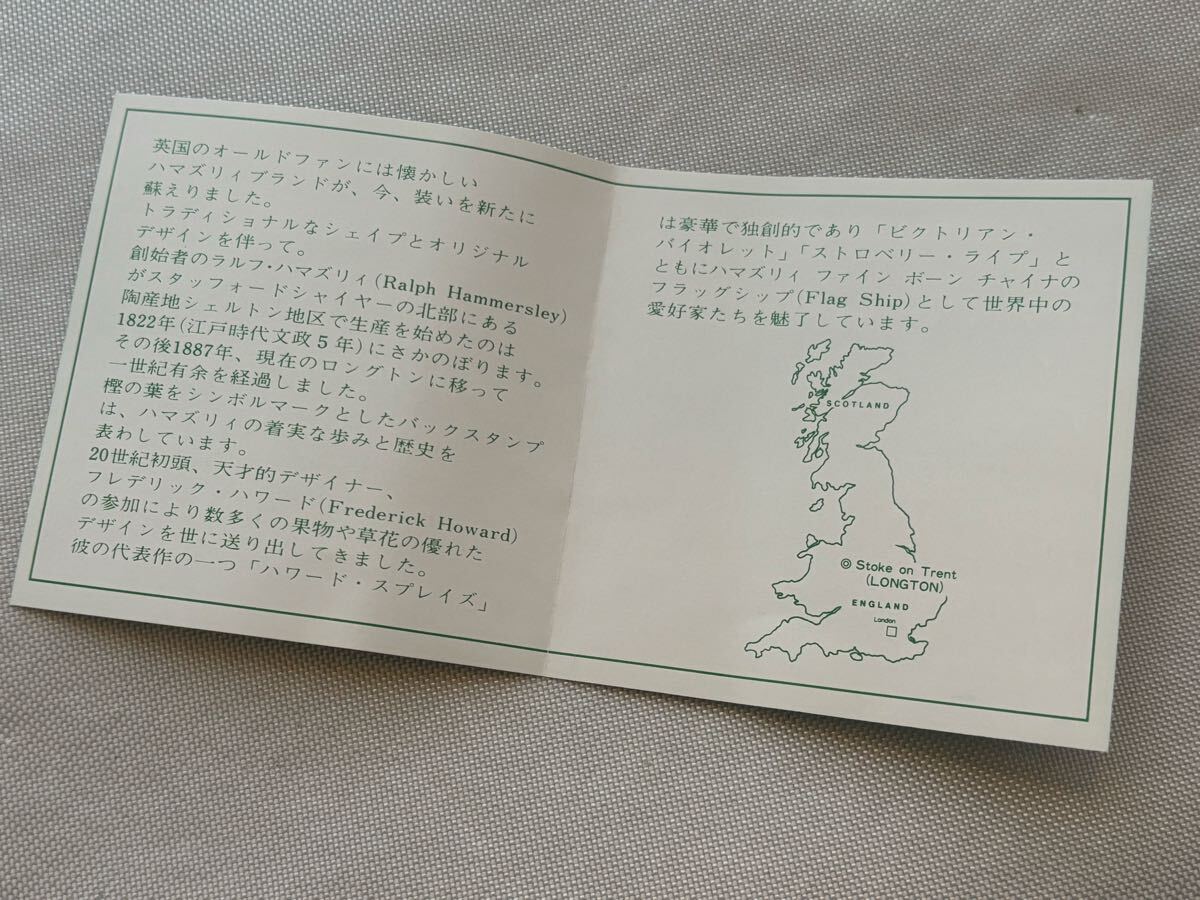 英国のオールドファンには懐かしい
ハマズリィブランドが、今、装いを新たに
蘇えりました。
トラディショナルなシェイプとオリジナル
デザインを伴って。
創始者のラルフ・ハマズリィ(Ralph Hammersley)
がスタッフォードシャイヤーの北部にある
陶産地シェルトン地区で生産を始めたのは
1822年(江戸時代文政5年)にさかのぼります。
その後1887年、現在のロングトンに移って
一世紀有余を経過しました。
樫の葉をシンボルマークとしたバックスタンプ
は、ハマズリィの着実な歩みと歴史を
表わしています。
20世紀初頭、天才的デザイナー、
フレデリック・ハワード(Frederick Howard)
の参加により数多くの果物や草花の優れた
デザインを世に送り出してきました。
彼の代表作の一つ「ハワード・スプレイズ」
は豪華で独創的であり「ビクトリアン・
バイオレット」「ストロベリー・ライプ」と
ともにハマズリィ ファイン ボーン チャイナの
フラッグシップ(Flag Ship)として世界中の
愛好家たちを魅了しています。
SCOTLAND
◎ Stoke on Trent
(LONGTON)
ENGLAND
London